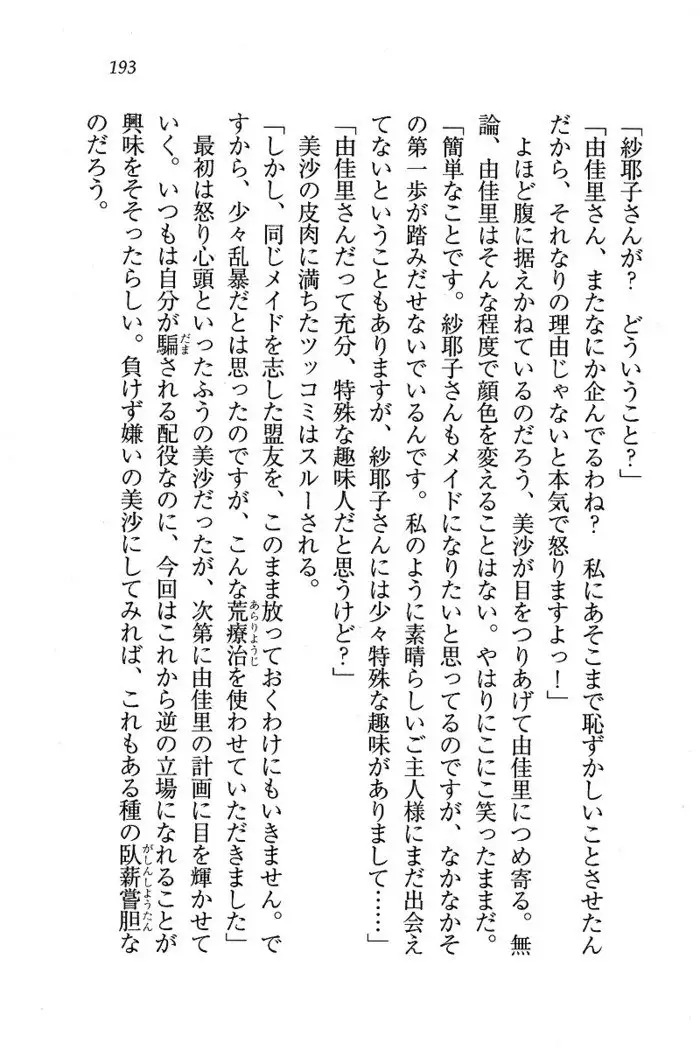 193
「紗耶子さんが？　どういうこと？」
「由佳里さん、またなにか企んでるわね？　私にあそこまで恥ずかしいことさせたん
だから、それなりの理由じゃないと本気で怒りますよっ！」
　よほど腹に据えかねているのだろう、美沙が目をつりあげて由佳里につめ寄る。無
論、由佳里はそんな程度で顔色を変えることはない。やはりにこにこ笑ったままだ。
「簡単なことです。紗耶子さんもメイドになりたいと思ってるのですが、なかなかそ
の第一歩が踏みだせないでいるんです。私のように素晴らしいご主人様にまだ出会え
てないということもありますが、紗耶子さんには少々特殊な趣味がありまして……」
「由佳里さんだって充分、特殊な趣味人だと思うけど？」
　美沙の皮肉に満ちたツッコミはスルーされる。
「しかし、同じメイドを志した盟友を、このまま放っておくわけにもいきません。で
すから、少々乱暴だとは思ったのですが、こんな荒療治を使わせていただきました」
あらりようじ
　最初は怒り心頭といったふうの美沙だったが、次第に由佳里の計画に目を輝かせて
いく。いつもは自分が騙される配役なのに、今回はこれから逆の立場になれることが
だま
興味をそそったらしい。負けず嫌いの美沙にしてみれば、これもある種の臥薪嘗胆な
がしんしょうたん
のだろう。